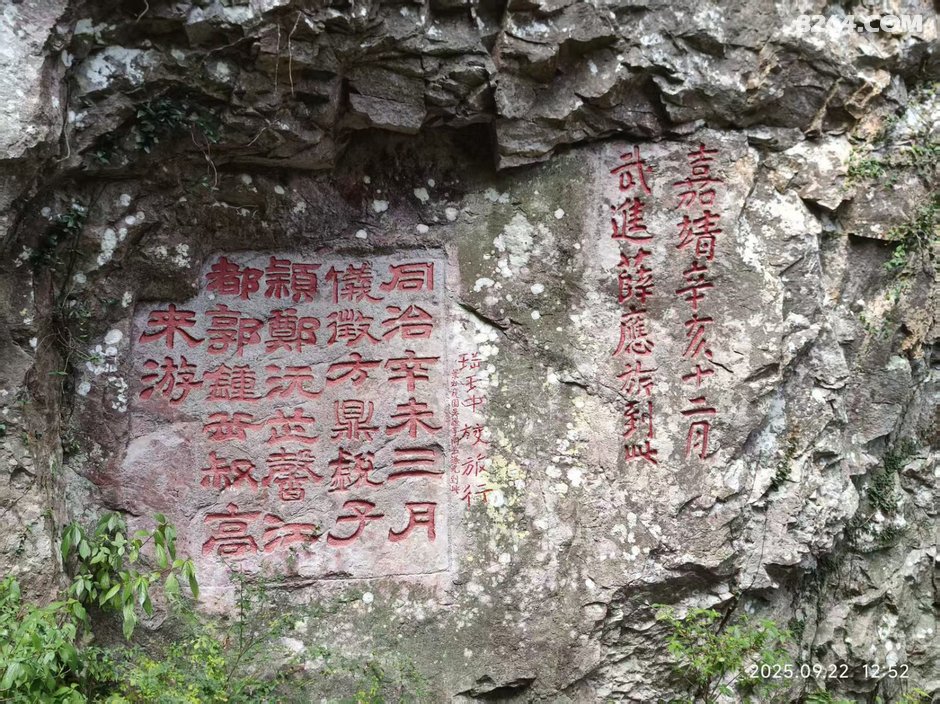 嘉靖辛亥十二月
武進薛應旂到此
中校旅行
同治辛未三月
儀徵方鼎銳子
穎鄭沅芷馨江
都郭鍾岳叔高
來游
8264.COM
2025.09.22 12:52